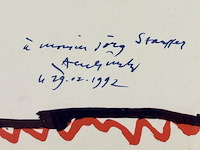 à monsieur jörg Stauffer
le 29.02.1992